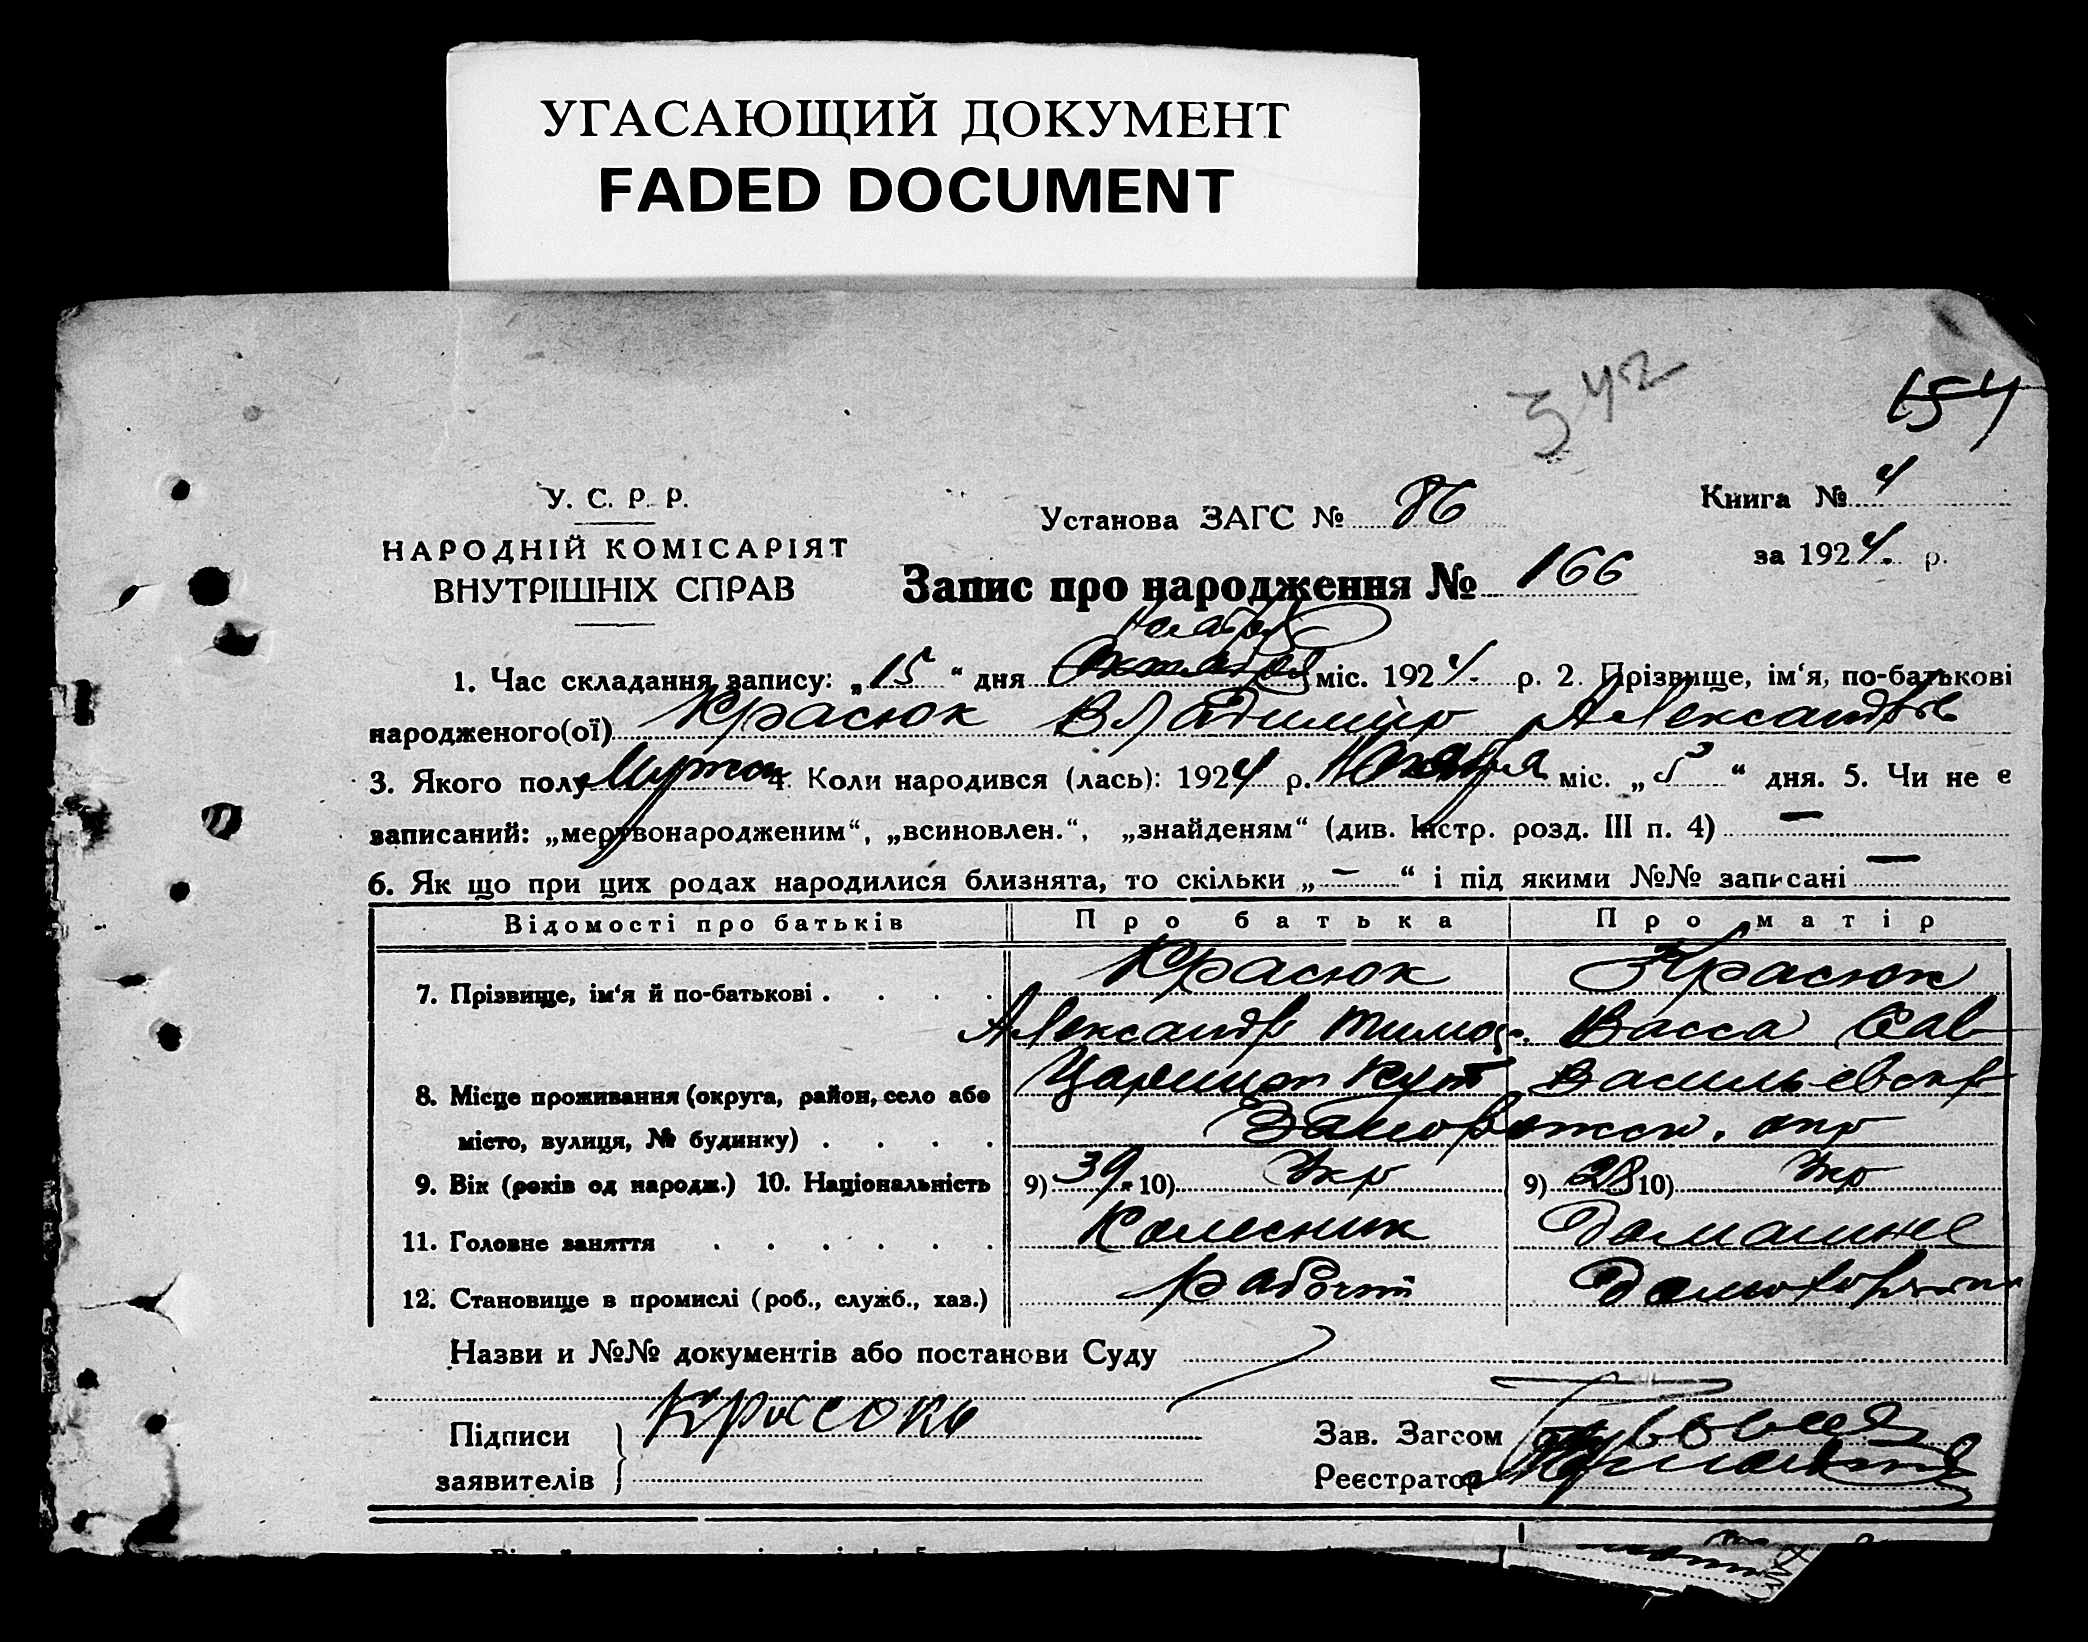 УГАСАЮЩИЙ ДОКУМЕНТ
FADED DOCUMENT
342
154
У. С. Р. Р.
НАРОДНІЙ КОМІСАРІЯТ
ВНУТРІШНІХ СПРАВ
Установа ЗАГС № 86
Книга № 4
за 1924. р.
Запис про народження № 166
Ноября
1. Час складання запису: „15“ дня Октября міс. 1924. р. 2. Прізвище, ім‘я, по-батькові
народженого(ої) Красюк Владимир Александров
3. Якого полу Мужск 4. Коли народився (лась): 1924 р. Ноября міс. „5“ дня. 5. Чи не є
записаний: „мертвонародженим“, „всиновлен.“, „знайденям“ (див. Інстр. розд. III п. 4) —
6. Як що при цих родах народилися близнята, то скільки „—“ і під якими №№ записані —
Відомості про батьків Про батька Про матір
7. Прізвище, ім‘я й по-батькові . . . . Красюк Красюк
Александр Тимоф. Васса Сав
8. Місце проживання (округа, район, село або Царицын Кут Васильевск
місто, вулиця, № будинку) . . . . Запорожск. окр
9. Вік (років од народж.) 10. Національність 9) 39. 10) Укр 9) 28 10) Укр
11. Головне заняття . . . . . . Колесник Домашнее
12. Становище в промислі (роб., служб., хаз.) рабочий
Назви и №№ документів або постанови Суду
Підписи
заявителів
Зав. Загсом
Реєстратор